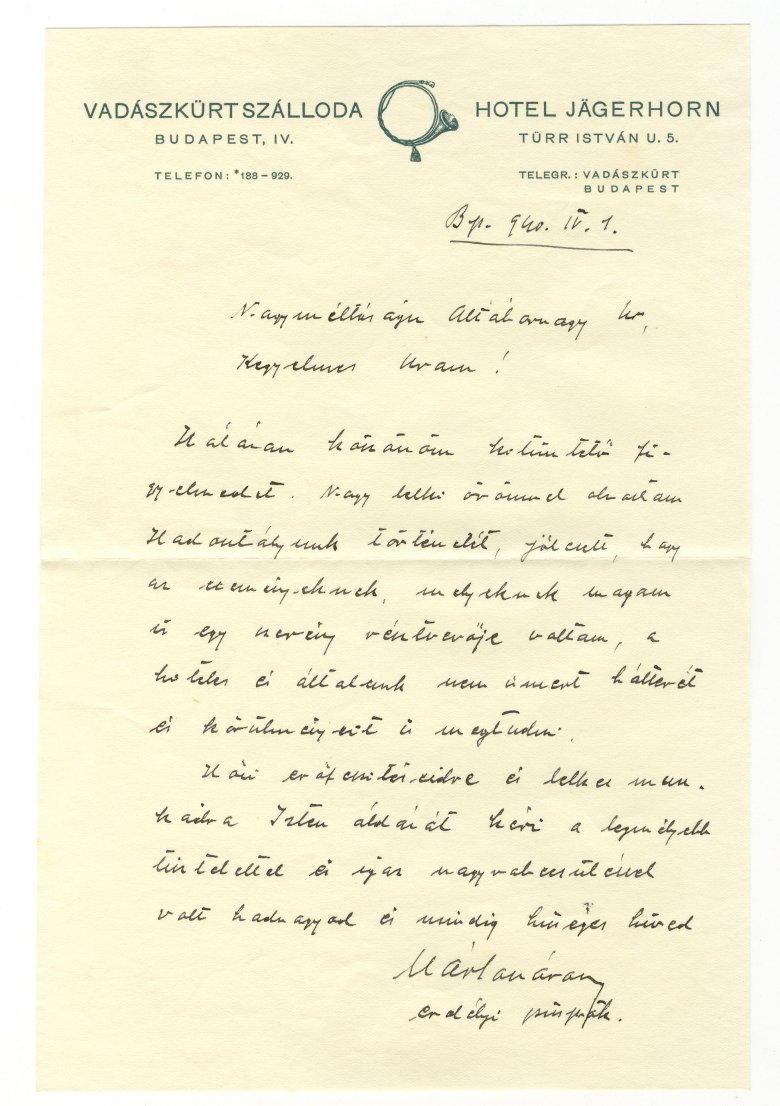 VADÁSZKÜRT SZÁLLODA
BUDAPEST, IV.
TELEFON: *188-929.
HOTEL JÄGERHORN
TÜRR ISTVÁN U. 5.
TELEGR.: VADÁSZKÜRT
BUDAPEST
Bp. 940. IV. 1.
Nagyméltóságu Altábornagy Ur,
Kegyelmes Uram!
Hálásan köszönöm kitüntető fi-
gyelmedet. Nagy lelki örömmel olvastam
Hadosztályunk történetét, jólesett, hogy
az eseményeknek, melyeknek magam
is egy szerény résztvevője voltam, a
hiteles és általunk nem ismert hátterét
és körülményeit is megtudni.
Hősi erőfeszitéseidre és lelkes mun-
kádra Isten áldását kéri a legmélyebb
tisztelettel és igaz nagyrabecsüléssel
volt hadnagyod és mindig hűséges híved
Márton Áron
erdélyi püspök.